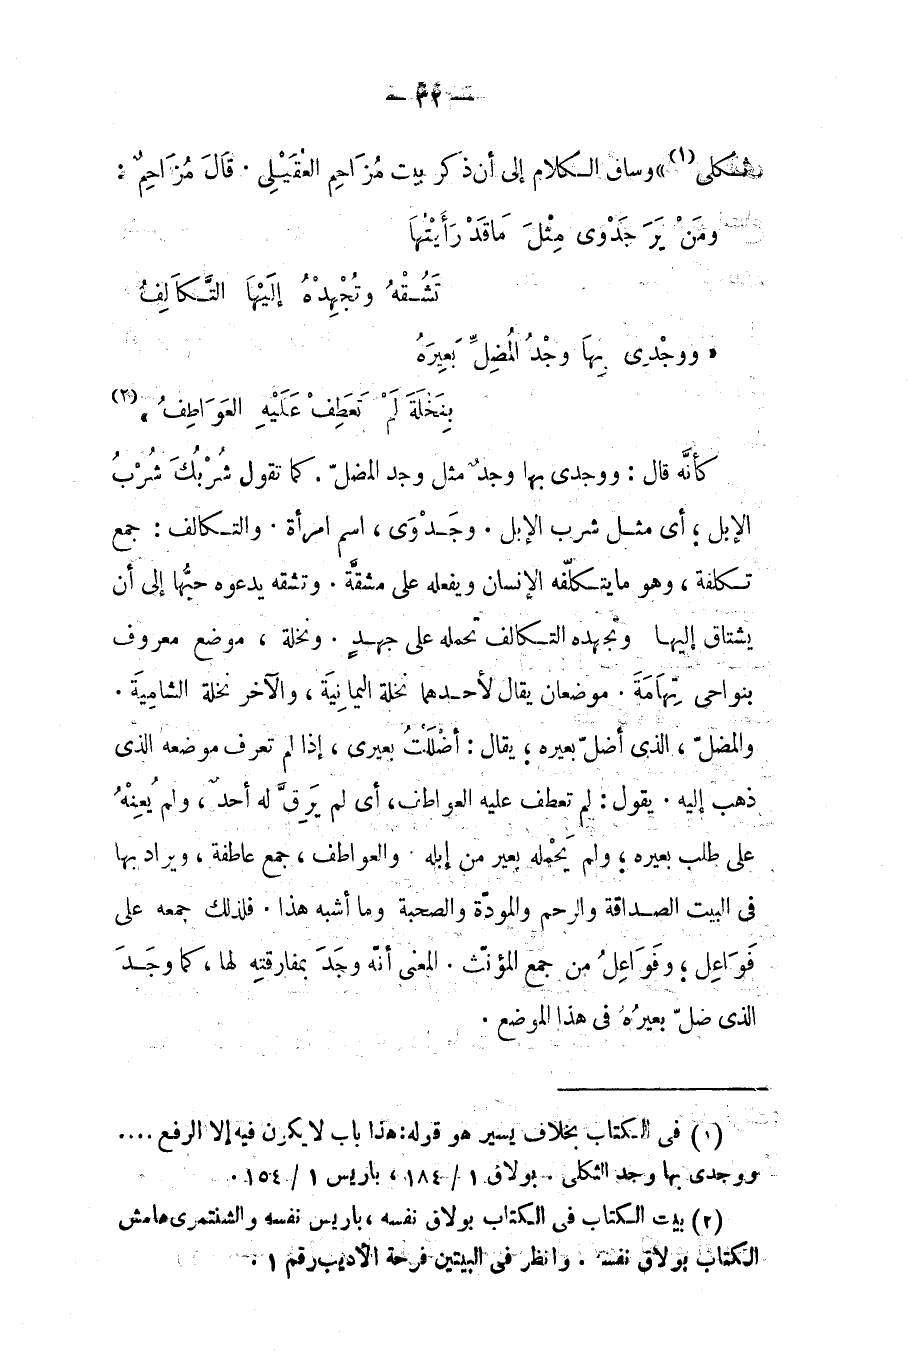 ثكلى (١) » وساق الكلام إلى أن ذكر بيت مُزَاحِمِ العُقَيْلِى . قَالَ مُزَاحِمٌ :
ومَنْ يَرَ جَدْوى مِثْلَ مَا قَدْ رَأَيْتُهَا
تَشُقْهُ وتُجْهِدْهُ إلَيْهَا التَّكَالِفُ
• ووجْدِى بِهَا وجْدُ المُضِلِّ بَعِيرَهُ
بِنَخْلَةَ لَمْ تَعَطِفْ عَلَيْهِ العَوَاطِفُ ، (٢)
كأنَّه قال : ووجدى بها وجدٌ مثل وجد المضلّ . كما تقول شُرْبُكَ شُرْبُ
الإبل ؛ أى مثل شرب الإبل . وجَدْوَى ، اسم امرأة . والتكالف : جمع
تكلفة ، وهو مايتكلّفه الإنسان ويفعله على مشقَّة . وتشقه يدعوه حبُّها إلى أن
يشتاق إليها وتجهده التكالف تحمله على جهدٍ . ونخلة ، موضع معروف
بنواحى تِهَامَةَ . موضعان يقال لأحدهما نخلة اليمانِيَة ، والآخر نخلة الشامِيَة .
والمضلّ ، الذى أضلّ بعيره ؛ يقال : أضْلَلْتُ بعيرى ، إذا لم تعرف موضعه الذى
ذهب إليه . يقول : لم تعطف عليه العواطف ، أى لم يَرِقَّ له أحدٌ ، ولم يُعِنْهُ
على طلب بعيره ؛ ولم يَحْمِله بعير من إبله . والعواطف ، جمع عاطفة ، ويراد بها
فى البيت الصداقة والرحم والمودّة والصحبة وما أشبه هذا . فلذلك جمعه على
فَوَاعِل ؛ وفَوَاعِلُ من جمع المؤنّث . المعنى أنّه وجَدَ بمفارقتِهِ لها ، كما وجَدَ
الذى ضلّ بعيرُهُ فى هذا الموضع .
(١) فى الكتاب بخلاف يسير هو قوله : هذا باب لا يكون فيه إلا الرفع ....
ووجدى بها وجد الثكلى . بولاق ١ / ١٨٤ ، باريس ١ / ١٥٤ .
(٢) بيت الكتاب فى الكتاب بولاق نفسه ، باريس نفسه والشنتمرى هامش
الكتاب بولاق نفسه . وانظر فى البيتين فرحة الأديب رقم ١ .